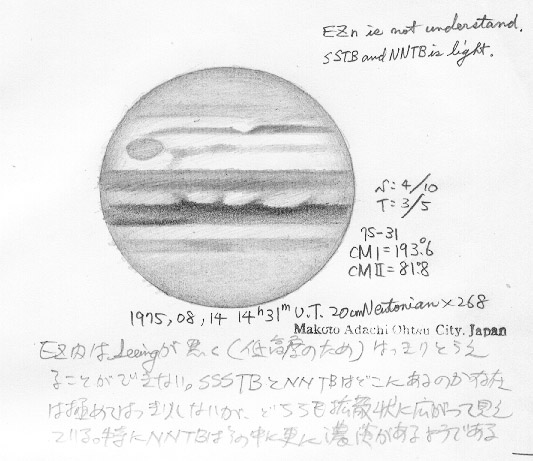 EZn is not understand.
SSTB and NNTB is light.
S: 4/10
T: 3/5
75-31
CMI = 193.°6
CMII = 81.°8
1975, 08, 14 14h31m U.T. 20cm Newtonian × 268
Makoto Adachi Ohtsu City, Japan
EZ内はSeeingが悪く(低高度のため)はっきりとらえ
ることができない。SSSTBとNNTBはどこにあるのか存在
は極めてはっきりしないが、どちらも拡散状に広がって見え
ている。特にNNTBはその中に更に濃淡があるようである